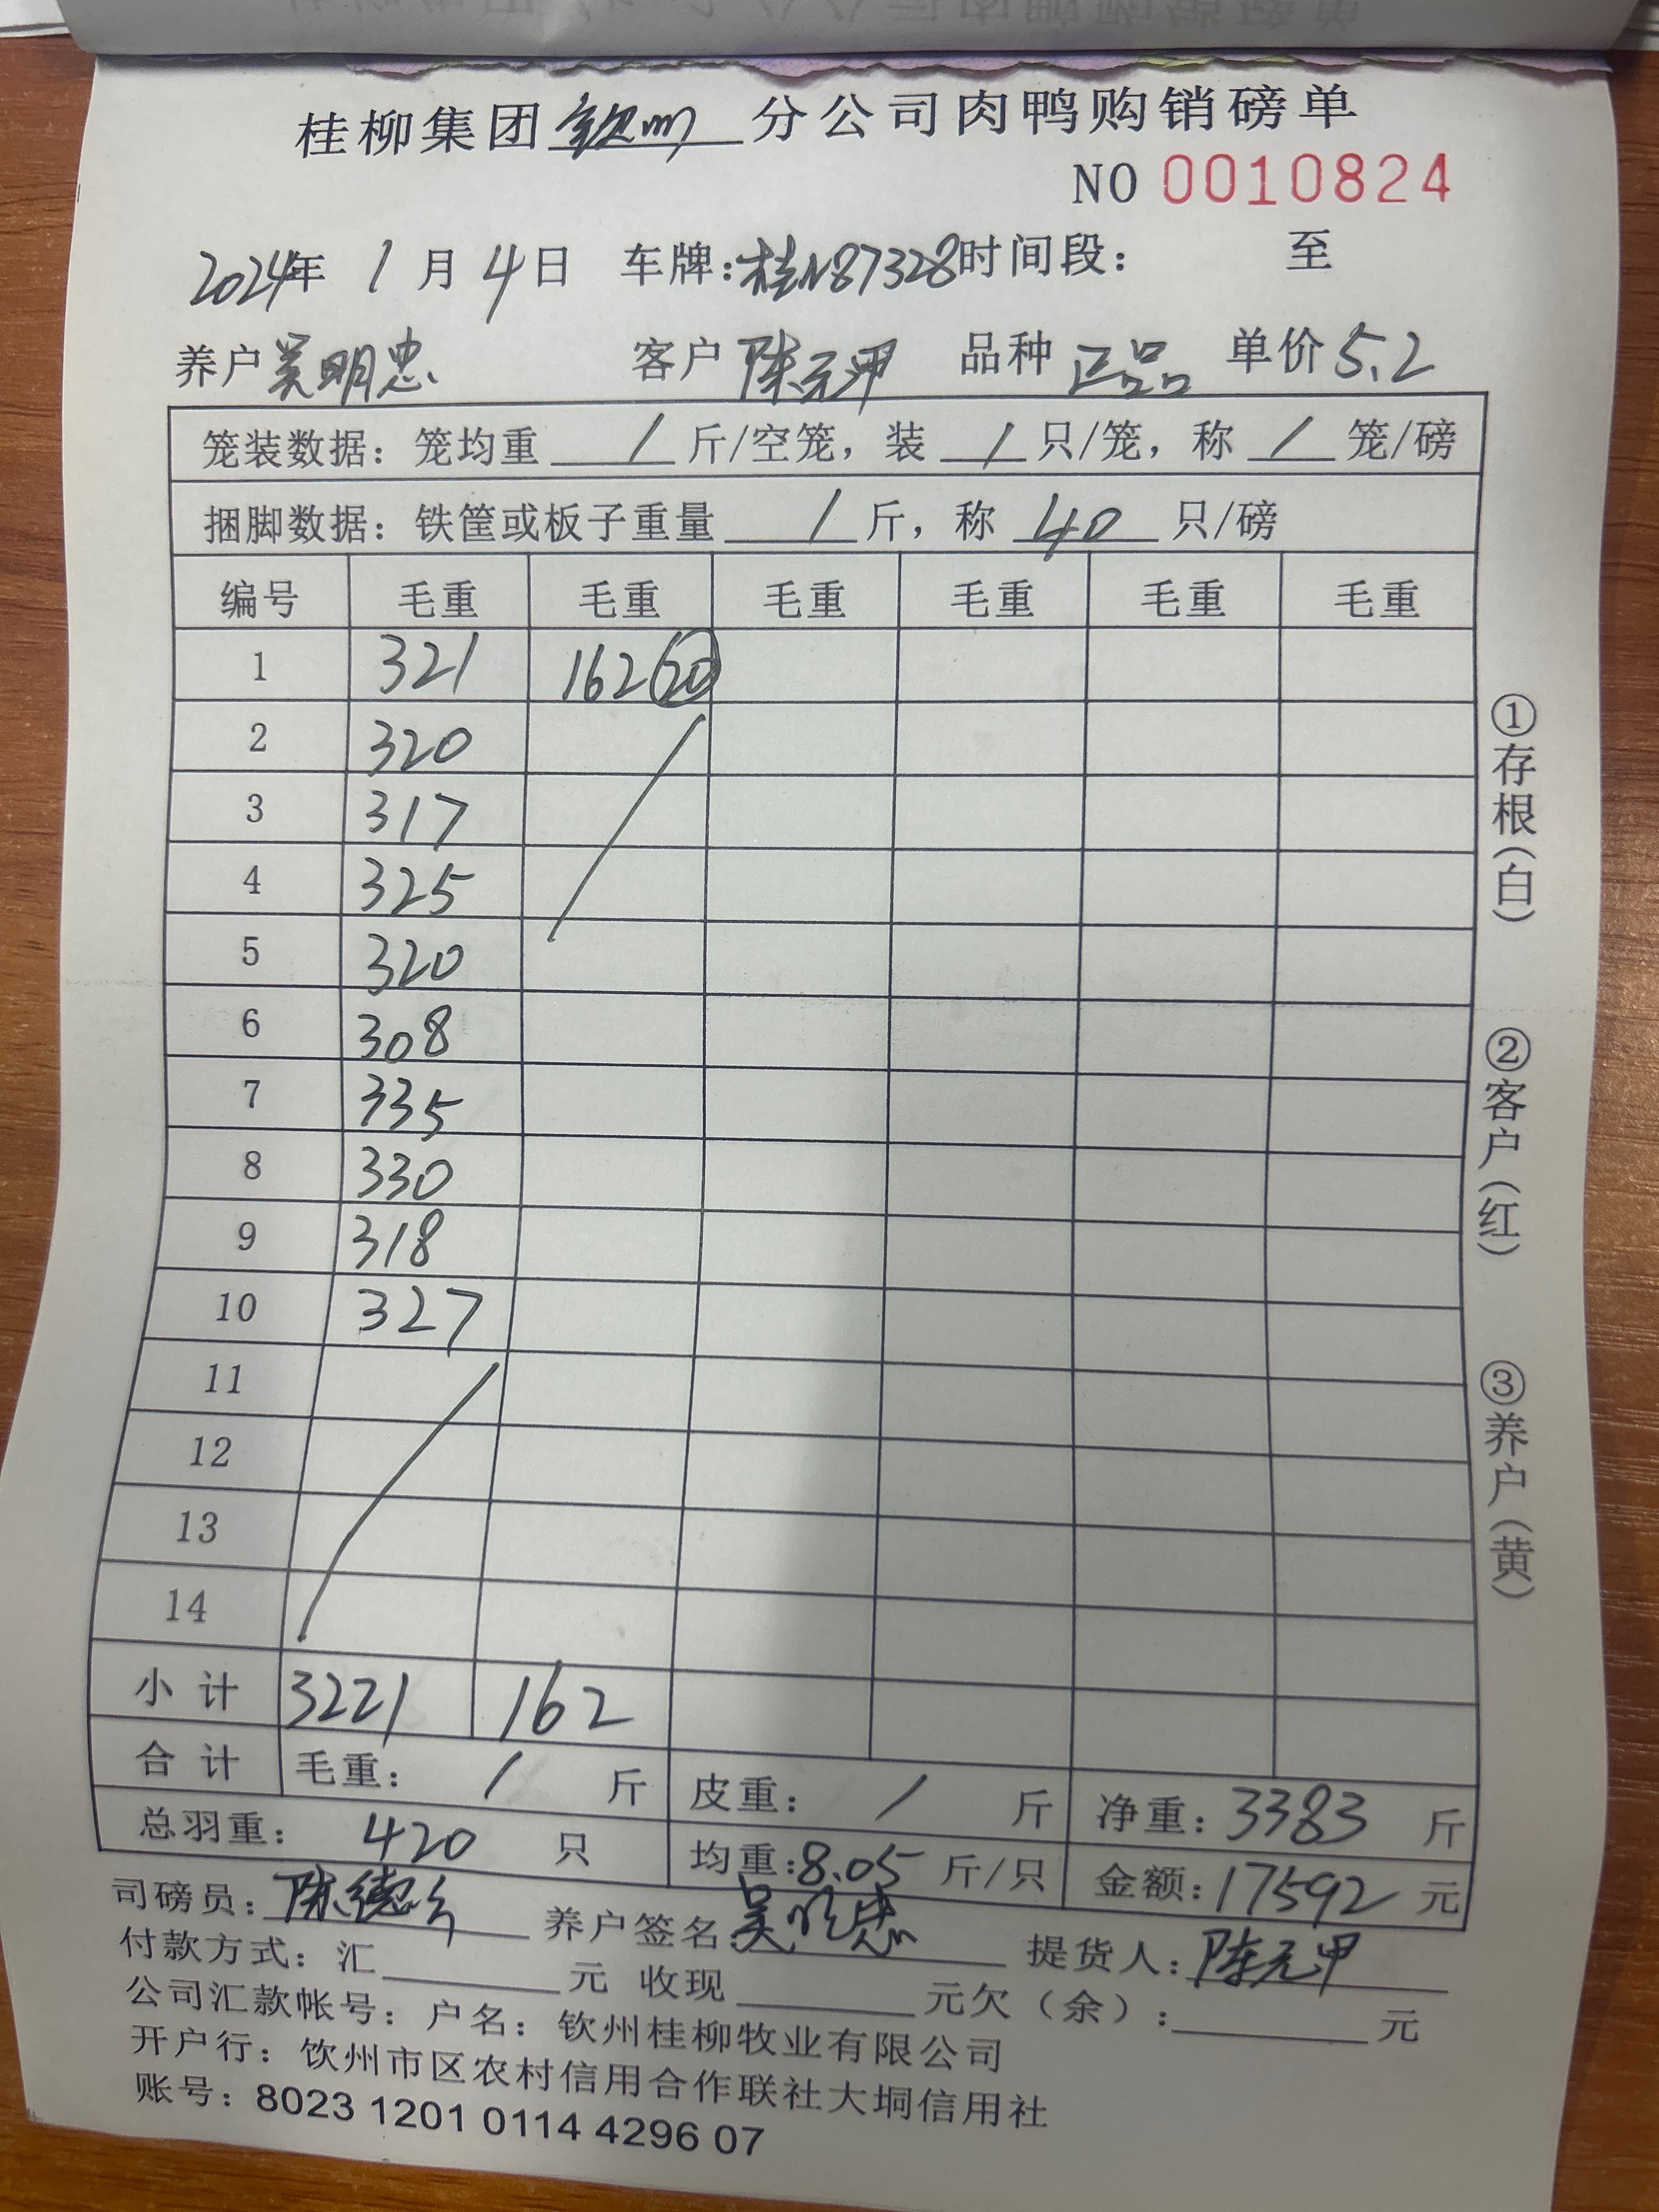 桂柳集团钦州分公司肉鸭购销磅单
NO 0010824
2024年 1月4日 车牌:桂N87328时间段: 至
养户吴明忠 客户陈元甲 品种正品 单价5.2
笼装数据: 笼均重 / 斤/空笼, 装 / 只/笼, 称 / 笼/磅
捆脚数据: 铁筐或板子重量 / 斤, 称 40 只/磅
编号 毛重 毛重 毛重 毛重 毛重 毛重
1 321 162 20
2 320
3 317
4 325
5 320
6 308
7 335
8 330
9 318
10 327
11
12
13
14
小计 3221 162
合计 毛重: / 斤 皮重: / 斤 净重:3383 斤
总羽重: 420 只 均重:8.05 斤/只 金额:17592 元
司磅员:陈德 养户签名:吴明忠 提货人:陈元甲
付款方式: 汇 元 收现 元欠(余): 元
公司汇款帐号: 户名: 钦州桂柳牧业有限公司
开户行: 钦州市区农村信用合作联社大垌信用社
账号: 8023 1201 0114 4296 07
①存根(白)
②客户(红)
③养户(黄)